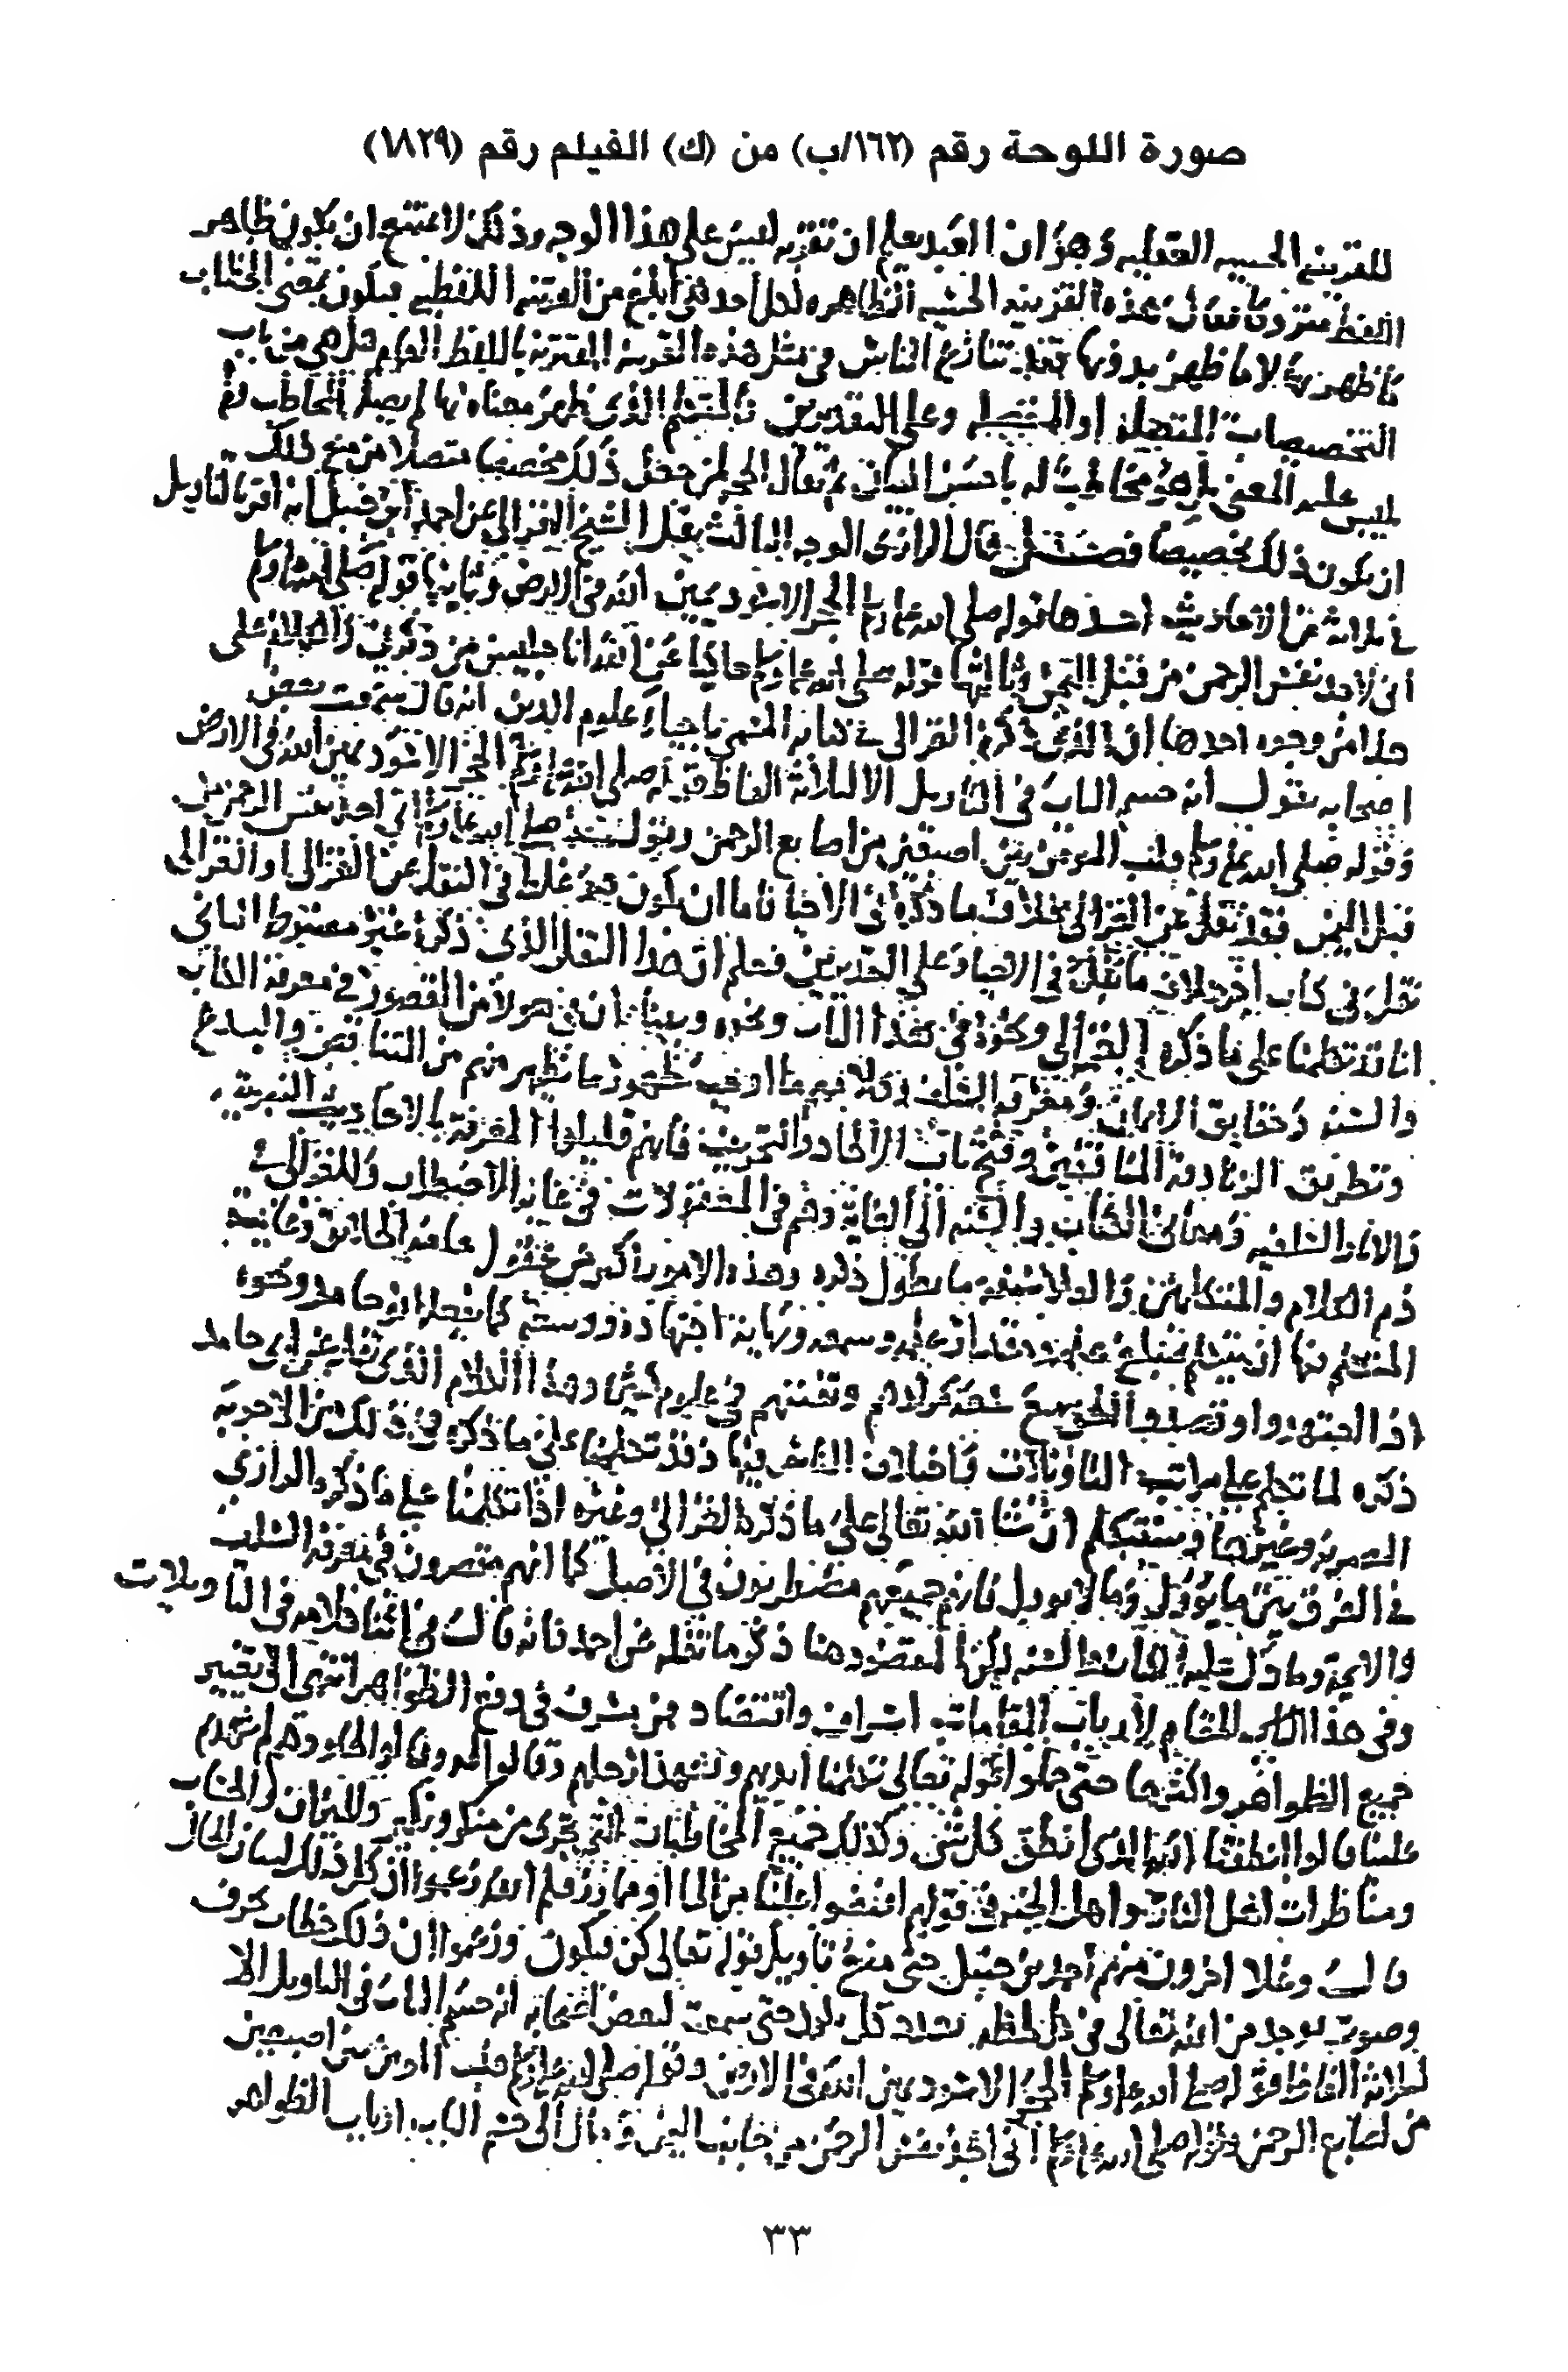 صورة اللوحة رقم (١٦٢/ب) من (ك) الفيلم رقم (١٨٢٩)
للقرينه الحسيه العقليه وهو ان العبد يعلم ان تقربه ليس على هذا الوجه وذلك لا يمتنع ان يكون ظاهر
اللفظ متروكا فقال هذه القرينه الحسيه الظاهره لكل احد هي ابلغ من القرينه اللفظيه فيكون معنى الخطاب
ما ظهر بها لا ما ظهر بدونها فقد تنازع الناس في مثل هذه القرينه المقترنه باللفظ العام هل هي من باب
التخصيصات المتصله او المنفصله وعلى التقديرين فالمتكلم الذي ظهر معناه بها لم يضل المخاطب ولم
يلبس عليه المعنى بل هو مخاطب له باحسن البيان ثم يقال الحج لمن جعل ذلك مخصصا متصلا من منع ذلك
ان يكون ذلك تخصيصا فصل قال الرازي الوجه الثالث نقل الشيخ الغزالي عن احمد ابن حنبل انه اقر بالتاويل
في ثلاثه من الاحاديث احدها قوله صلى الله عليه وسلم الحجر الاسود يمين الله في الارض وثانيها قوله صلى الله عليه وسلم
اني لاجد نفس الرحمن من قبل اليمن وثالثها قوله صلى الله عليه وسلم حاكيا عن الله انا جليس من ذكرني والكلام على
هذا من وجوه احدها ان الذي ذكره الغزالي في كتابه المسمى باحياء علوم الدين انه قال سمعت بعض
اصحابه يقول انه حسم الباب في التاويل الا لثلاثة الفاظ قوله صلى الله عليه وسلم الحجر الاسود يمين الله في الارض
وقوله صلى الله عليه وسلم قلب المومن بين اصبعين من اصابع الرحمن وقوله صلى الله عليه وسلم اني لاجد نفس الرحمن من
قبل اليمن فقد نقل عن الغزالي بخلاف ما ذكره في الاحيا فاما ان يكون هو غلط في النقل عن الغزالي او الغزالي
نقل في كتاب اخر خلاف ما نقله في الاحياء وعلى التقديرين فعلم ان هذا النقل الذي ذكره غير مضبوط الثاني
انا قد تكلمنا على ما ذكره الغزالي ونحوه في هذا الباب ونحوه وبينا ان في هولا من القصور في معرفة الكتاب
والسنه وحقايق الايمان ومعرفة السلف ما اوجب ظهور ما يظهر منهم من التناقض والبدع
وتطريق الزنادقة المنافقين وفتح باب الالحاد والتحريف فانهم قليلوا المعرفة بالاحاديث النبويه
والاثار السلفيه ومعاني الكتاب والسنه الى الغاية وهم في المعقولات في غاية الاضطراب وللغزالي في
ذم الكلام والمتكلمين ما يطول ذكره وهذه الامور اكبر من عقول عامة الخلايق وغاية
المتكلم منها ان يتكلم بمبلغ علمه ومقدار عقله وسمعه ونهاية اجتهاده ووسعه كما فعله ابو حامد ونحوه
اذا اجتهدوا وقصدوا الحق مع كثرة كلامهم وتفننهم في علوم اخر وهذا الكلام الذي نقله عن ابي حامد
ذكره لما تكلم على مراتب التاويلات واختلاف الناس فيها وقد تكلمنا على ما ذكره في ذلك من الاجوبة
المصرية وغيرها وسنتكلم ان شا الله تعالى على ما ذكره الغزالي وغيره اذا تكلمنا على ما ذكره الرازي
في الفرق بين ما يؤول وما لا يوول فانهم جميعهم مضطربون في الاصل كما انهم مقصرون في معرفة السلف
والايمة وما دل عليه الكتاب والسنه لكن المقصود هنا ذكر ما نقله عن احمد فانه قال في اثنا كلامه في التاويلات
وفي هذا الباب للقام لارباب المقامات اسراف واقتصاد فمن مسرف في دفع الظواهر انتهى الى تغيير
جميع الظواهر واكثرها حتى حملوا قوله تعالى تكلمنا ايديهم وتشهد ارجلهم وقالوا لجلودهم لم شهدتم
علينا قالوا انطقنا الله الذي انطق كل شي وكذلك جميع المخاطبات التي تجري من منكر ونكير والميزان والحساب
ومناظرات اهل النار واهل الجنه في قولهم افيضوا علينا من الما او مما رزقكم الله زعموا ان كل ذلك لسان الحال
قال وغلا اخرون منهم احمد بن حنبل حتى منع تاويل قوله تعالى كن فيكون وزعموا ان ذلك خطاب بحرف
وصوت يوجد من الله تعالى في كل لحظه بعدد كل مكون حتى سمعت لبعض اصحابه انه حسم الباب في التاويل الا
لثلاثة الفاظ قوله صلى الله عليه وسلم الحجر الاسود يمين الله في الارض وقوله صلى الله عليه وسلم قلب المومن بين اصبعين
من اصابع الرحمن وقوله صلى الله عليه وسلم اني لاجد نفس الرحمن من جانب اليمن ومال الى حسم الباب ارباب الظواهر
٣٣